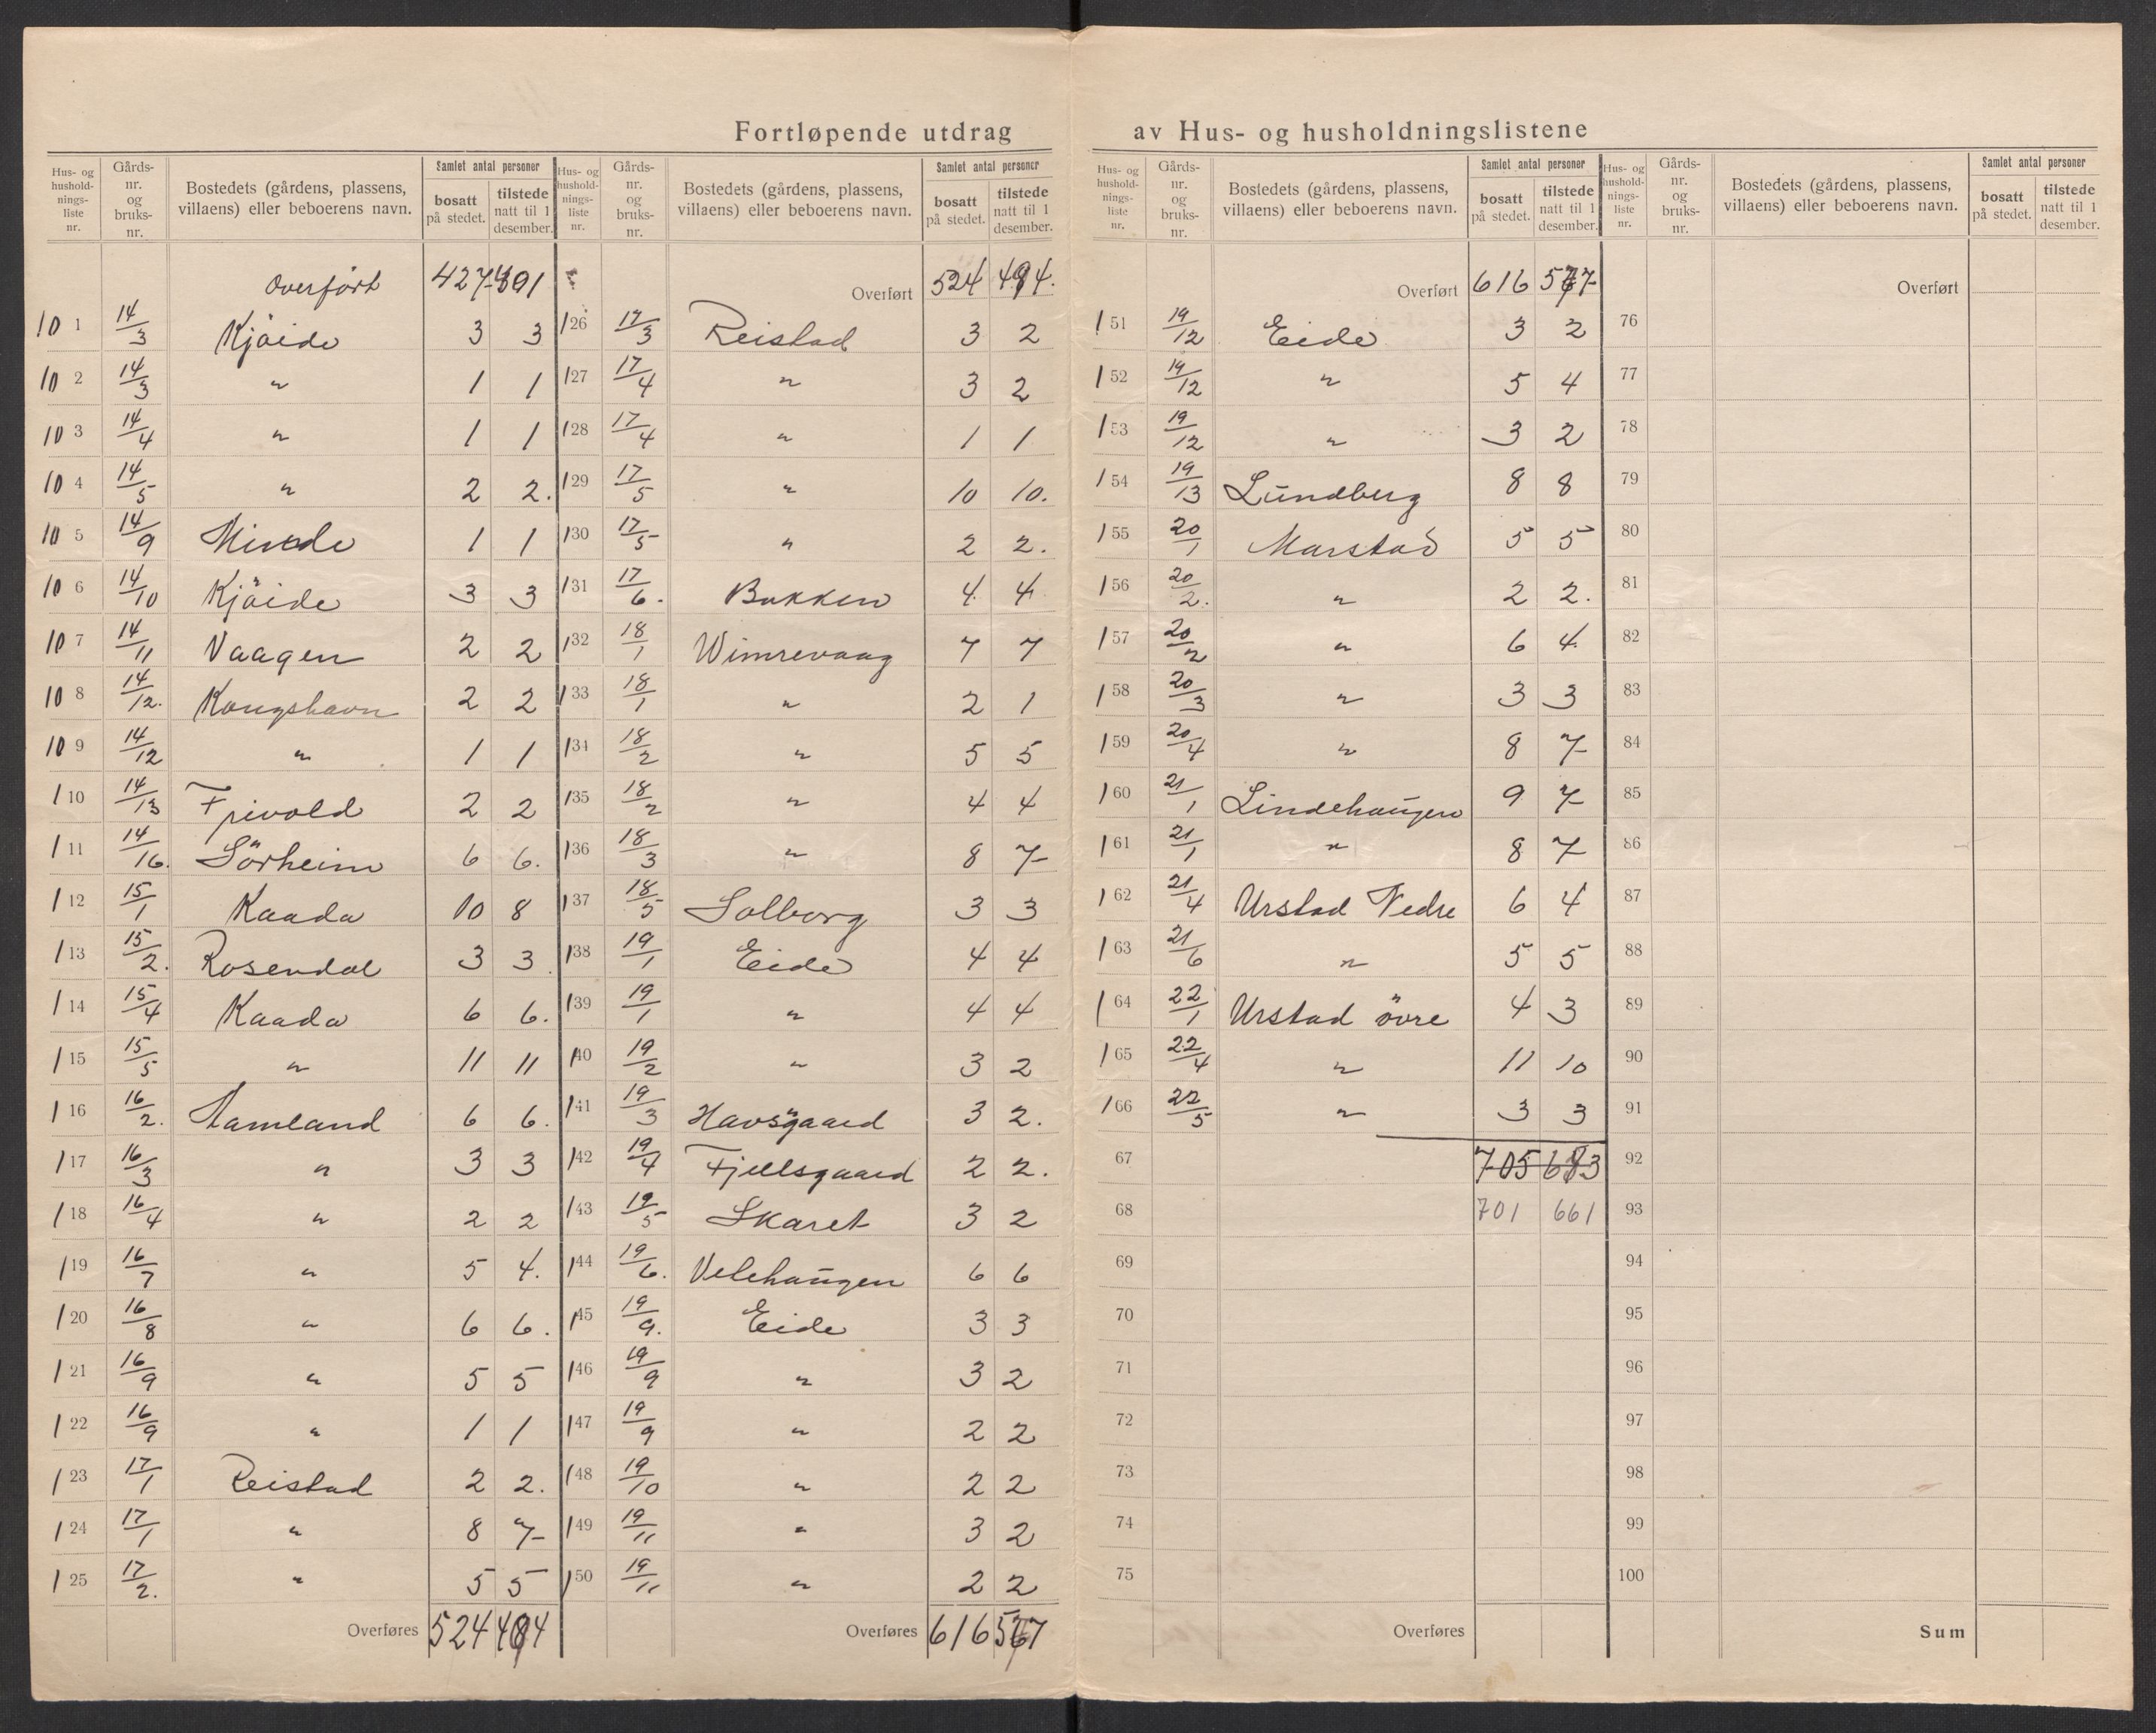 Fortløpende utdrag av Hus- og husholdningslistene
Hus- og hushold-nings-liste nr. | Gårds-nr. og bruks-nr. | Bostedets (gårdens, plassens, villaens) eller beboerens navn. | Samlet antal personer | bosatt på stedet. | tilstede natt til 1 desember.
Overført 427
101 14/3 Kjöide 3 3
102 14/3 " 1 1
103 14/4 " 1 1
104 14/5 " 2 2.
105 14/9 1 1
106 14/10 Kjöide 3 3
107 14/11 Vaagen 2 2
108 14/12. Kongshavn 2 2
109 14/12 " 1 1
110 14/13 Frivold 2 2
111 14/16. Sörheim 6 6.
112 15/1 Kaada 10 8
113 15/2. Rosendal 3 3.
114 15/4 Kaada 6 6.
115 15/5 " 11 11
116 16/2. Hamland 6 6.
117 16/3 " 3 3
118 16/4 " 2 2
119 16/7 " 5 4.
120 16/8 " 6 6.
121 16/9 " 5 5
122 16/9 " 1 1
123 17/1 Reistad 2 2.
124 17/1 " 8 7
125 17/2. " 5 5
Overføres 524 484
Hus- og hushold-nings-liste nr. | Gårds-nr. og bruks-nr. | Bostedets (gårdens, plassens, villaens) eller beboerens navn. | Samlet antal personer | bosatt på stedet. | tilstede natt til 1 desember.
Overført 524 494.
126 17/3 Reistad 3 2
127 17/4 " 3 2
128 17/4 " 1 1
129 17/5 " 10 10.
130 17/5 " 2 2.
131 17/6. Bakken 4 4
132 18/1 Wimrevaag 7 7
133 18/1 " 2 1
134 18/2 " 5 5
135 18/2 " 4 4
136 18/3 " 8 7
137 18/5 Solborg 3 3
138 19/1 Eide 4 4
139 19/1 " 4 4
140 19/2 " 3 2
141 19/3 Havsgaard 3 2.
142 19/4 Fjellsgaard 2 2.
143 19/5 Skaret 3 2
144 19/6. Velehaugen 6 6
145 19/9. Eide 3 3
146 19/9 " 3 2
147 19/9 " 2 2
148 19/10 " 2 2
149 19/11 " 3 2
150 19/11 " 2 2
Overføres 616 567
Hus- og hushold-nings-liste nr. | Gårds-nr. og bruks-nr. | Bostedets (gårdens, plassens, villaens) eller beboerens navn. | Samlet antal personer | bosatt på stedet. | tilstede natt til 1 desember.
Overført 616 577
151 19/12 Eide 3 2
152 19/12 " 5 4
153 19/12 " 3 2
154 19/13 Lundberg 8 8
155 20/1 Marstad 5 5
156 20/2. " 2 2.
157 20/2 " 6 4
158 20/3 " 3 3
159 20/4 " 8 7
160 21/1 Lindehaugen 9 7
161 21/1 " 8 7
162 21/4 Urstad Nedre 6 4
163 21/6 " 5 5
164 22/1 Urstad övre 4 3
165 22/4 " 11 10
166 22/5 " 3 3
67 705 683
68 701 661
69
70
71
72
73
74
75
Overføres
Hus- og hushold-nings-liste nr. | Gårds-nr. og bruks-nr. | Bostedets (gårdens, plassens, villaens) eller beboerens navn. | Samlet antal personer | bosatt på stedet. | tilstede natt til 1 desember.
Overført
76
77
78
79
80
81
82
83
84
85
86
87
88
89
90
91
92
93
94
95
96
97
98
99
100
Sum